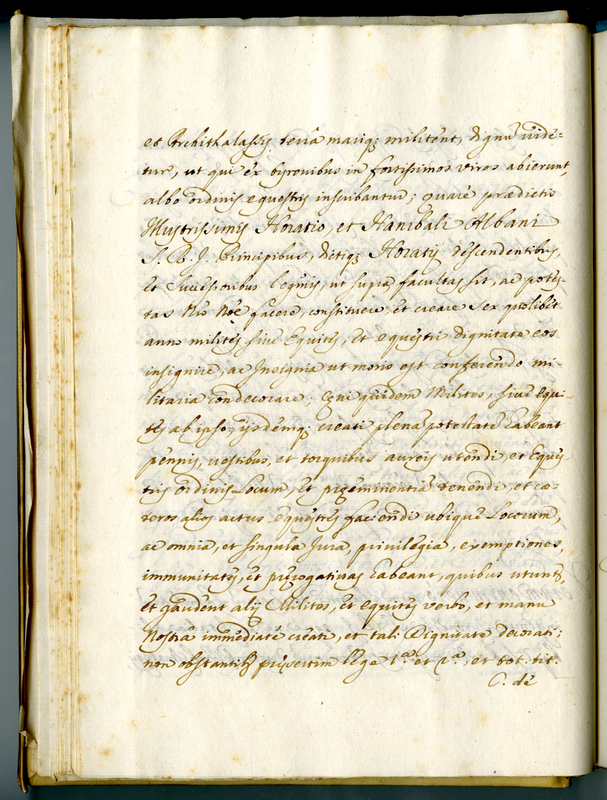 et Archithalassis terra mariq; militent, dignũ vide-
tur, ut qui ex tyronibus in fortissimos viros abierunt,
albo ordinis equestris inscribantur; quare prædictis
Illustrissimis Horatio, et Hanibali Albani
S. R. I. Principibus, dictiq; Horatij descendentibus,
et successoribus legitis, ut supra facultas sit, ac potes-
tas Nrõ Nõe facere, constituere et creare sex quolibet
anno milites sive Equites, et equestri dignitate eos
insignire, ac Insignia ut moris est conferendo mi-
litaria condecorare; qui quidem Milites, sive Equi-
tes ab ipso, ijsdemq; creati plenã potestatẽ habeant
pennis, vestibus, et torquibus aureis utendi, et Eques
tris ordinis Locum, et præeminentiã tenendi, et cæ-
teros alios actus equestres faciendi ubique Locorum,
ac omnia, et singula Jura, privilegia, exemptiones,
immunitates, et prærogativas habeant, quibus utunt,
et gaudent alij Milites, et equites verbo, et manu
Nostra immediatè creati, et tali Dignitate decorati;
non obstantib. præsertim lege 1.ª et 2.ª, et tot. tit.
C. de